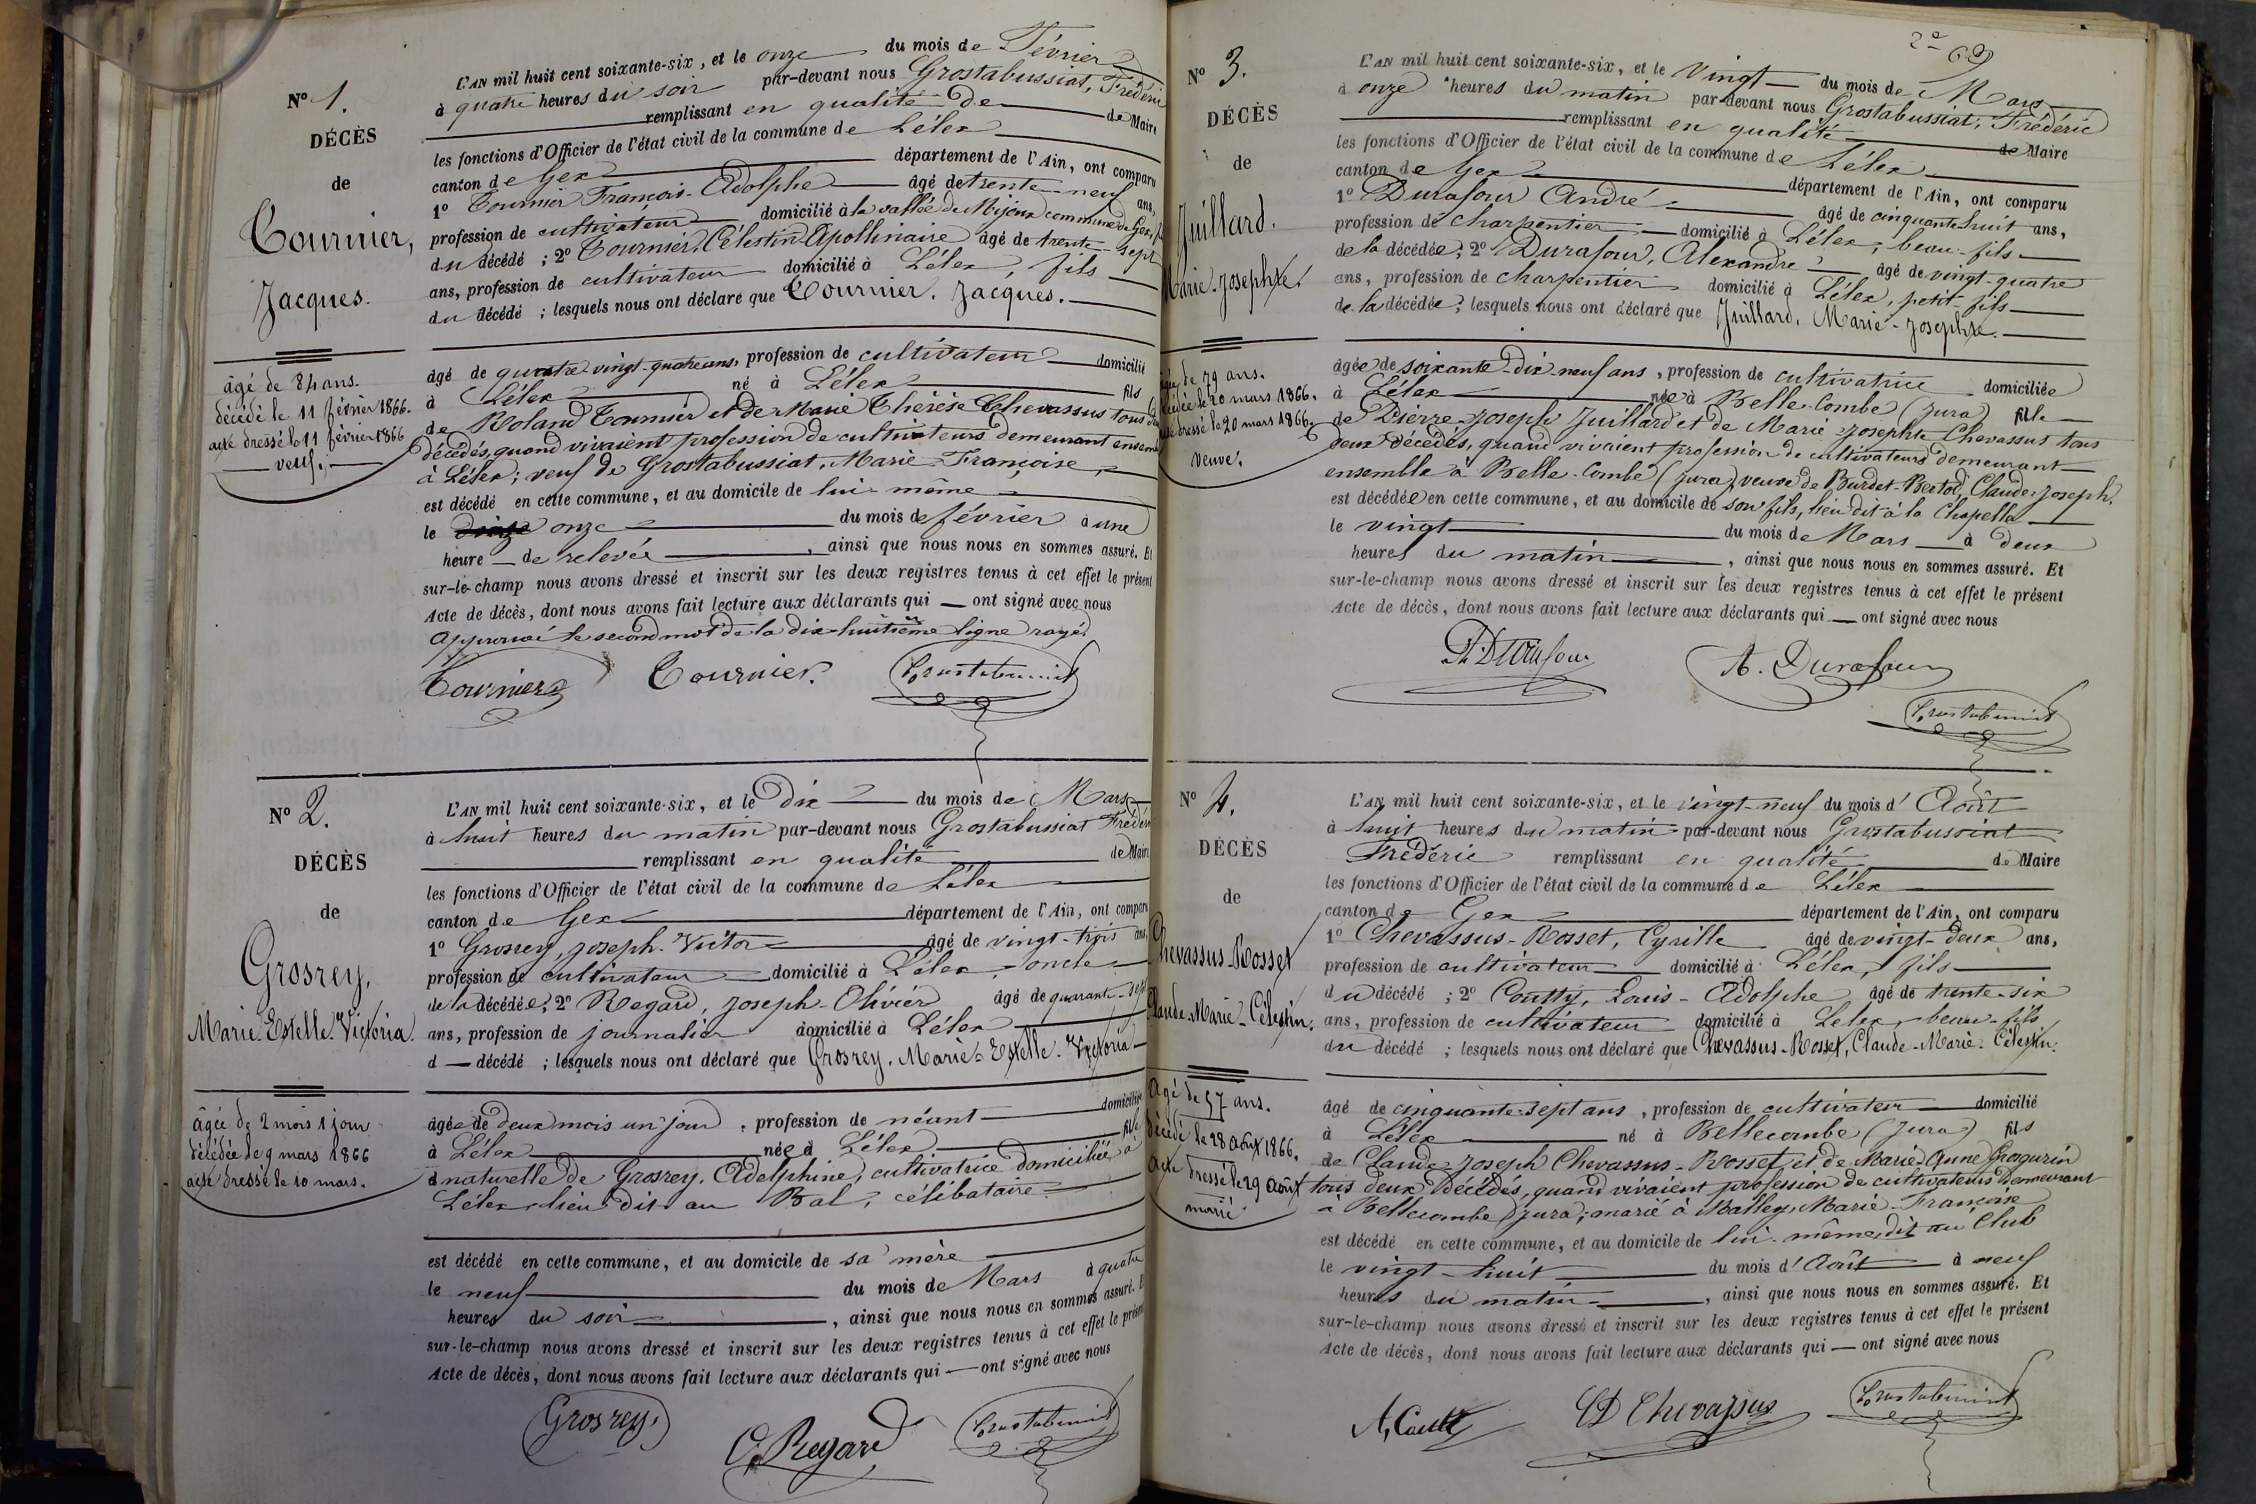 Nº 1.
DÉCÈS
de
Tournier,
Jacques.
âgé de 84 ans.
décédé le 11 février 1866.
acte dressé le 11 février 1866
veuf.
L'AN mil huit cent soixante-six, et le onze du mois de Février
à quatre heures du soir par-devant nous Grostabussiat, Frédéric
remplissant en qualité de de Maire
les fonctions d'Officier de l'état civil de la commune de Lélex
canton de Gex département de l'Ain, ont comparu
1º Tournier François-Adolphe âgé de trente-neuf ans,
profession de cultivateur domicilié à la vallée de Mijoux commune de Gex,
du décédé ; 2º Tournier, Célestin-Apollinaire âgé de trente-sept
ans, profession de cultivateur domicilié à Lélex, fils
du décédé ; lesquels nous ont déclaré que Tournier, Jacques.
âgé de quatre-vingt-quatre ans, profession de cultivateur domicilié
à Lélex né à Lélex fils
de Roland Tournier et de Marie Thérèse Chevassus tous
décédés, quand vivaient profession de cultivateurs demeurant
à Lélex ; veuf de Grostabussiat, Marie-Françoise,
est décédé en cette commune, et au domicile de lui-même
le onze du mois de février à une
heure de relevée, ainsi que nous nous en sommes assuré. Et
sur-le-champ nous avons dressé et inscrit sur les deux registres tenus à cet effet le présent
Acte de décès, dont nous avons fait lecture aux déclarants qui — ont signé avec nous
Approuvé le second mot de la dix-huitième ligne rayé.
Tournier Tournier. Grostabussiat
Nº 2.
DÉCÈS
de
Grosrey,
Marie-Estelle-Victoria.
âgée de 2 mois 1 jour
décédée le 9 mars 1866
acte dressé le 10 mars.
L'AN mil huit cent soixante-six, et le Dix du mois de Mars
à huit heures du matin par-devant nous Grostabussiat Frédéric
remplissant en qualité de Maire
les fonctions d'Officier de l'état civil de la commune de Lélex
canton de Gex département de l'Ain, ont comparu
1º Grosrey, Joseph-Victor âgé de vingt-trois ans,
profession de cultivateur domicilié à Lélex, oncle
de la décédée ; 2º Regard, Joseph-Olivier âgé de quarante-sept
ans, profession de journalier domicilié à Lélex
d — décédé ; lesquels nous ont déclaré que Grosrey, Marie-Estelle-Victoria
âgée de deux mois un jour, profession de néant domiciliée
à Lélex née à Lélex fille
naturelle de Grosrey, Adelphine, cultivatrice domiciliée à
Lélex lieu dit au Bal, célibataire
est décédé en cette commune, et au domicile de sa mère
le neuf du mois de Mars à quatre
heures du soir, ainsi que nous nous en sommes assuré. Et
sur-le-champ nous avons dressé et inscrit sur les deux registres tenus à cet effet le présent
Acte de décès, dont nous avons fait lecture aux déclarants qui — ont signé avec nous
Grosrey, O. Regard Grostabussiat
Nº 3.
DÉCÈS
de
Juillard.
Marie-Josephte.
âgée de 79 ans.
décédée le 20 mars 1866.
acte dressé le 20 mars 1866.
veuve.
L'AN mil huit cent soixante-six, et le Vingt du mois de Mars
à onze heures du matin par-devant nous Grostabussiat, Frédéric
remplissant en qualité de Maire
les fonctions d'Officier de l'état civil de la commune de Lélex
canton de Gex département de l'Ain, ont comparu
1º Durafour André âgé de cinquante-huit ans,
profession de charpentier domicilié à Lélex, beau-fils
de la décédée ; 2º Durafour, Alexandre âgé de vingt-quatre
ans, profession de charpentier domicilié à Lélex, petit-fils
de la décédée ; lesquels nous ont déclaré que Juillard, Marie-Josephte.
âgée de soixante-dix-neuf ans, profession de cultivatrice domiciliée
à Lélex née à Belle-Combe (Jura) fille
de Pierre-Joseph Juillard et de Marie-Josephte Chevassus tous
deux décédés, quand vivaient profession de cultivateurs demeurant
ensemble à Belle-Combe (Jura), veuve de Burdet-Bertod, Claude-Joseph,
est décédée en cette commune, et au domicile de son fils, lieu dit à la Chapelle
le vingt du mois de Mars à deux
heures du matin, ainsi que nous nous en sommes assuré. Et
sur-le-champ nous avons dressé et inscrit sur les deux registres tenus à cet effet le présent
Acte de décès, dont nous avons fait lecture aux déclarants qui — ont signé avec nous
Durafour A. Durafour
Grostabussiat
Nº 4.
DÉCÈS
de
Chevassus-Rosset
Claude-Marie-Célestin.
Agé de 57 ans.
Décédé le 28 août 1866.
Acte dressé le 29 août
marié
L'AN mil huit cent soixante-six, et le vingt-neuf du mois d'Août
à huit heures du matin par-devant nous Grostabussiat
Frédéric remplissant en qualité de Maire
les fonctions d'Officier de l'état civil de la commune de Lélex
canton de Gex département de l'Ain, ont comparu
1º Chevassus-Rosset, Cyrille âgé de vingt-deux ans,
profession de cultivateur domicilié à Lélex, fils
du décédé ; 2º Coutty, Louis-Adolphe âgé de trente-six
ans, profession de cultivateur domicilié à Lélex, beau-fils
du décédé ; lesquels nous ont déclaré que Chevassus-Rosset, Claude-Marie-Célestin.
âgé de cinquante-sept ans, profession de cultivateur domicilié
à Lélex né à Bellecombe (Jura) fils
de Claude-Joseph Chevassus-Rosset et de Marie Anne Grosgurin
tous deux décédés, quand vivaient profession de cultivateurs demeurant
à Bellecombe (Jura) ; marié à Malley, Marie-Françoise
est décédé en cette commune, et au domicile de lui-même, dit au Club
le vingt-huit du mois d'Août à neuf
heures du matin, ainsi que nous nous en sommes assuré. Et
sur-le-champ nous avons dressé et inscrit sur les deux registres tenus à cet effet le présent
Acte de décès, dont nous avons fait lecture aux déclarants qui — ont signé avec nous
A, Coutty Chevassus Grostabussiat